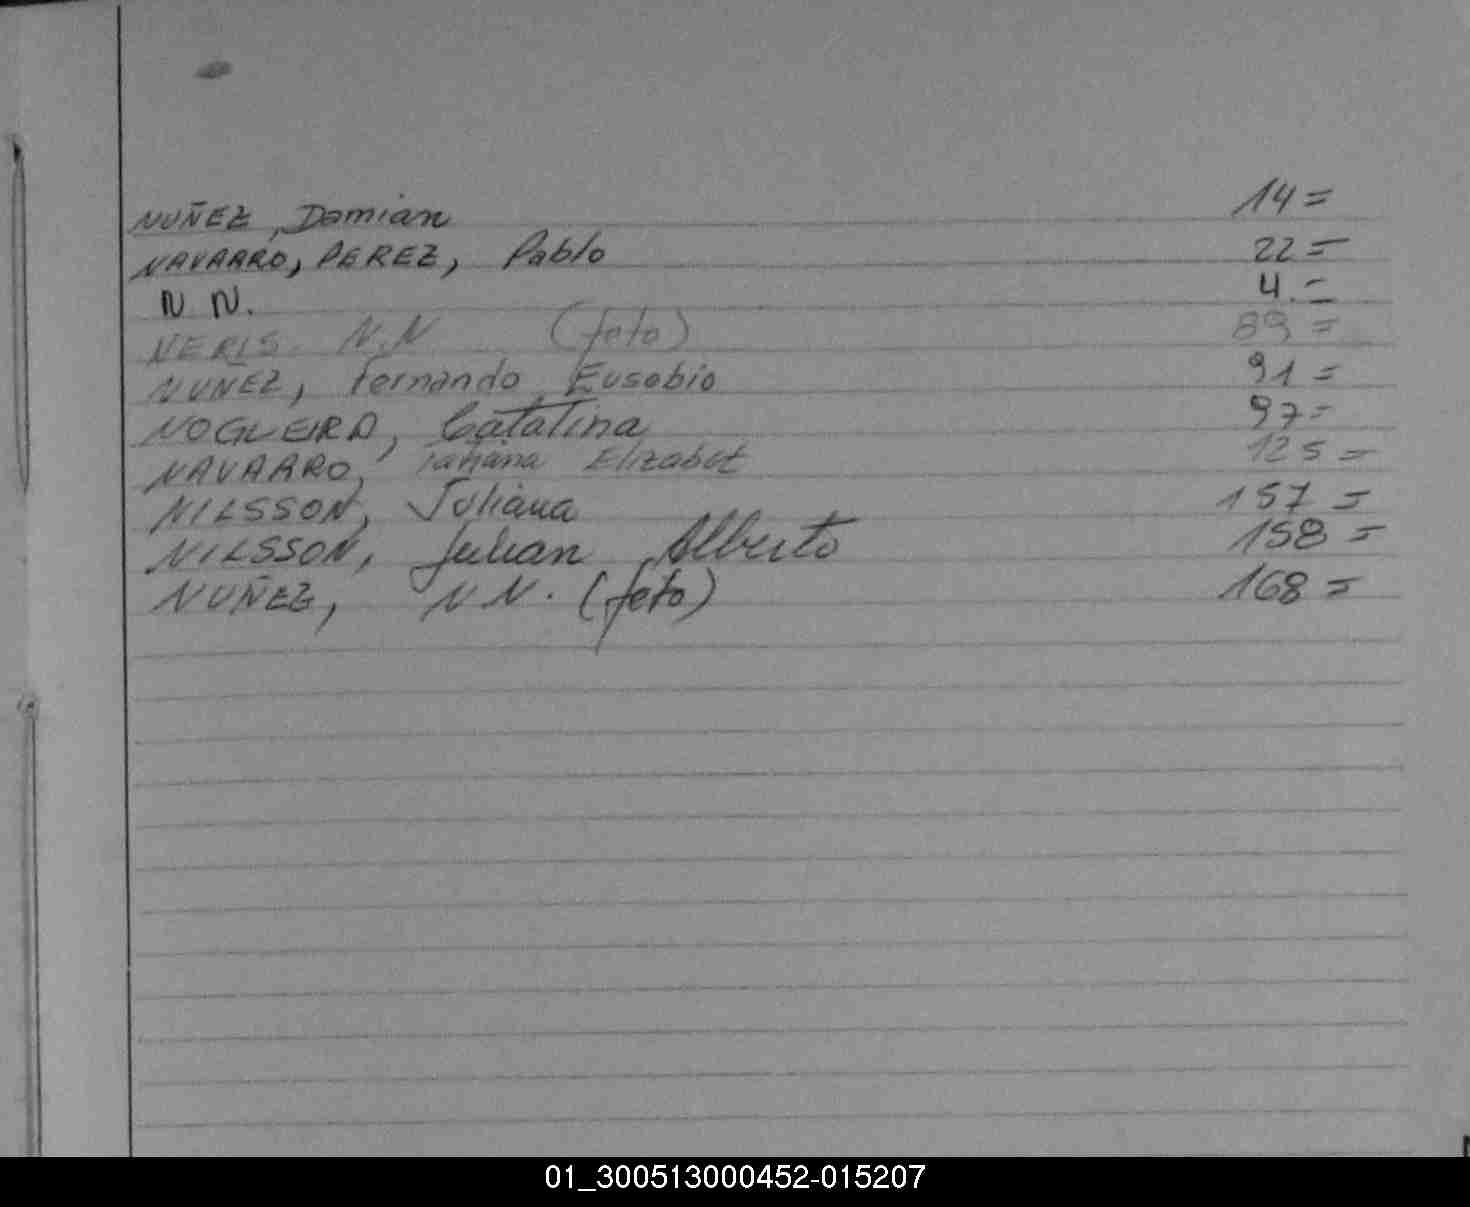 NUÑEZ, Damian 14=
NAVARRO, PEREZ, Pablo 22=
N N. 4.=
NERIS. N.N (feto) 89=
NUNEZ, Fernando Eusebio 91=
NOGUEIRA, Catalina 97=
NAVARRO, Tatiana Elizabet 125=
NILSSON, Juliana 157=
NILSSON, Julian Alberto 158=
NUÑEZ, N N. (feto) 168=
01_300513000452-015207